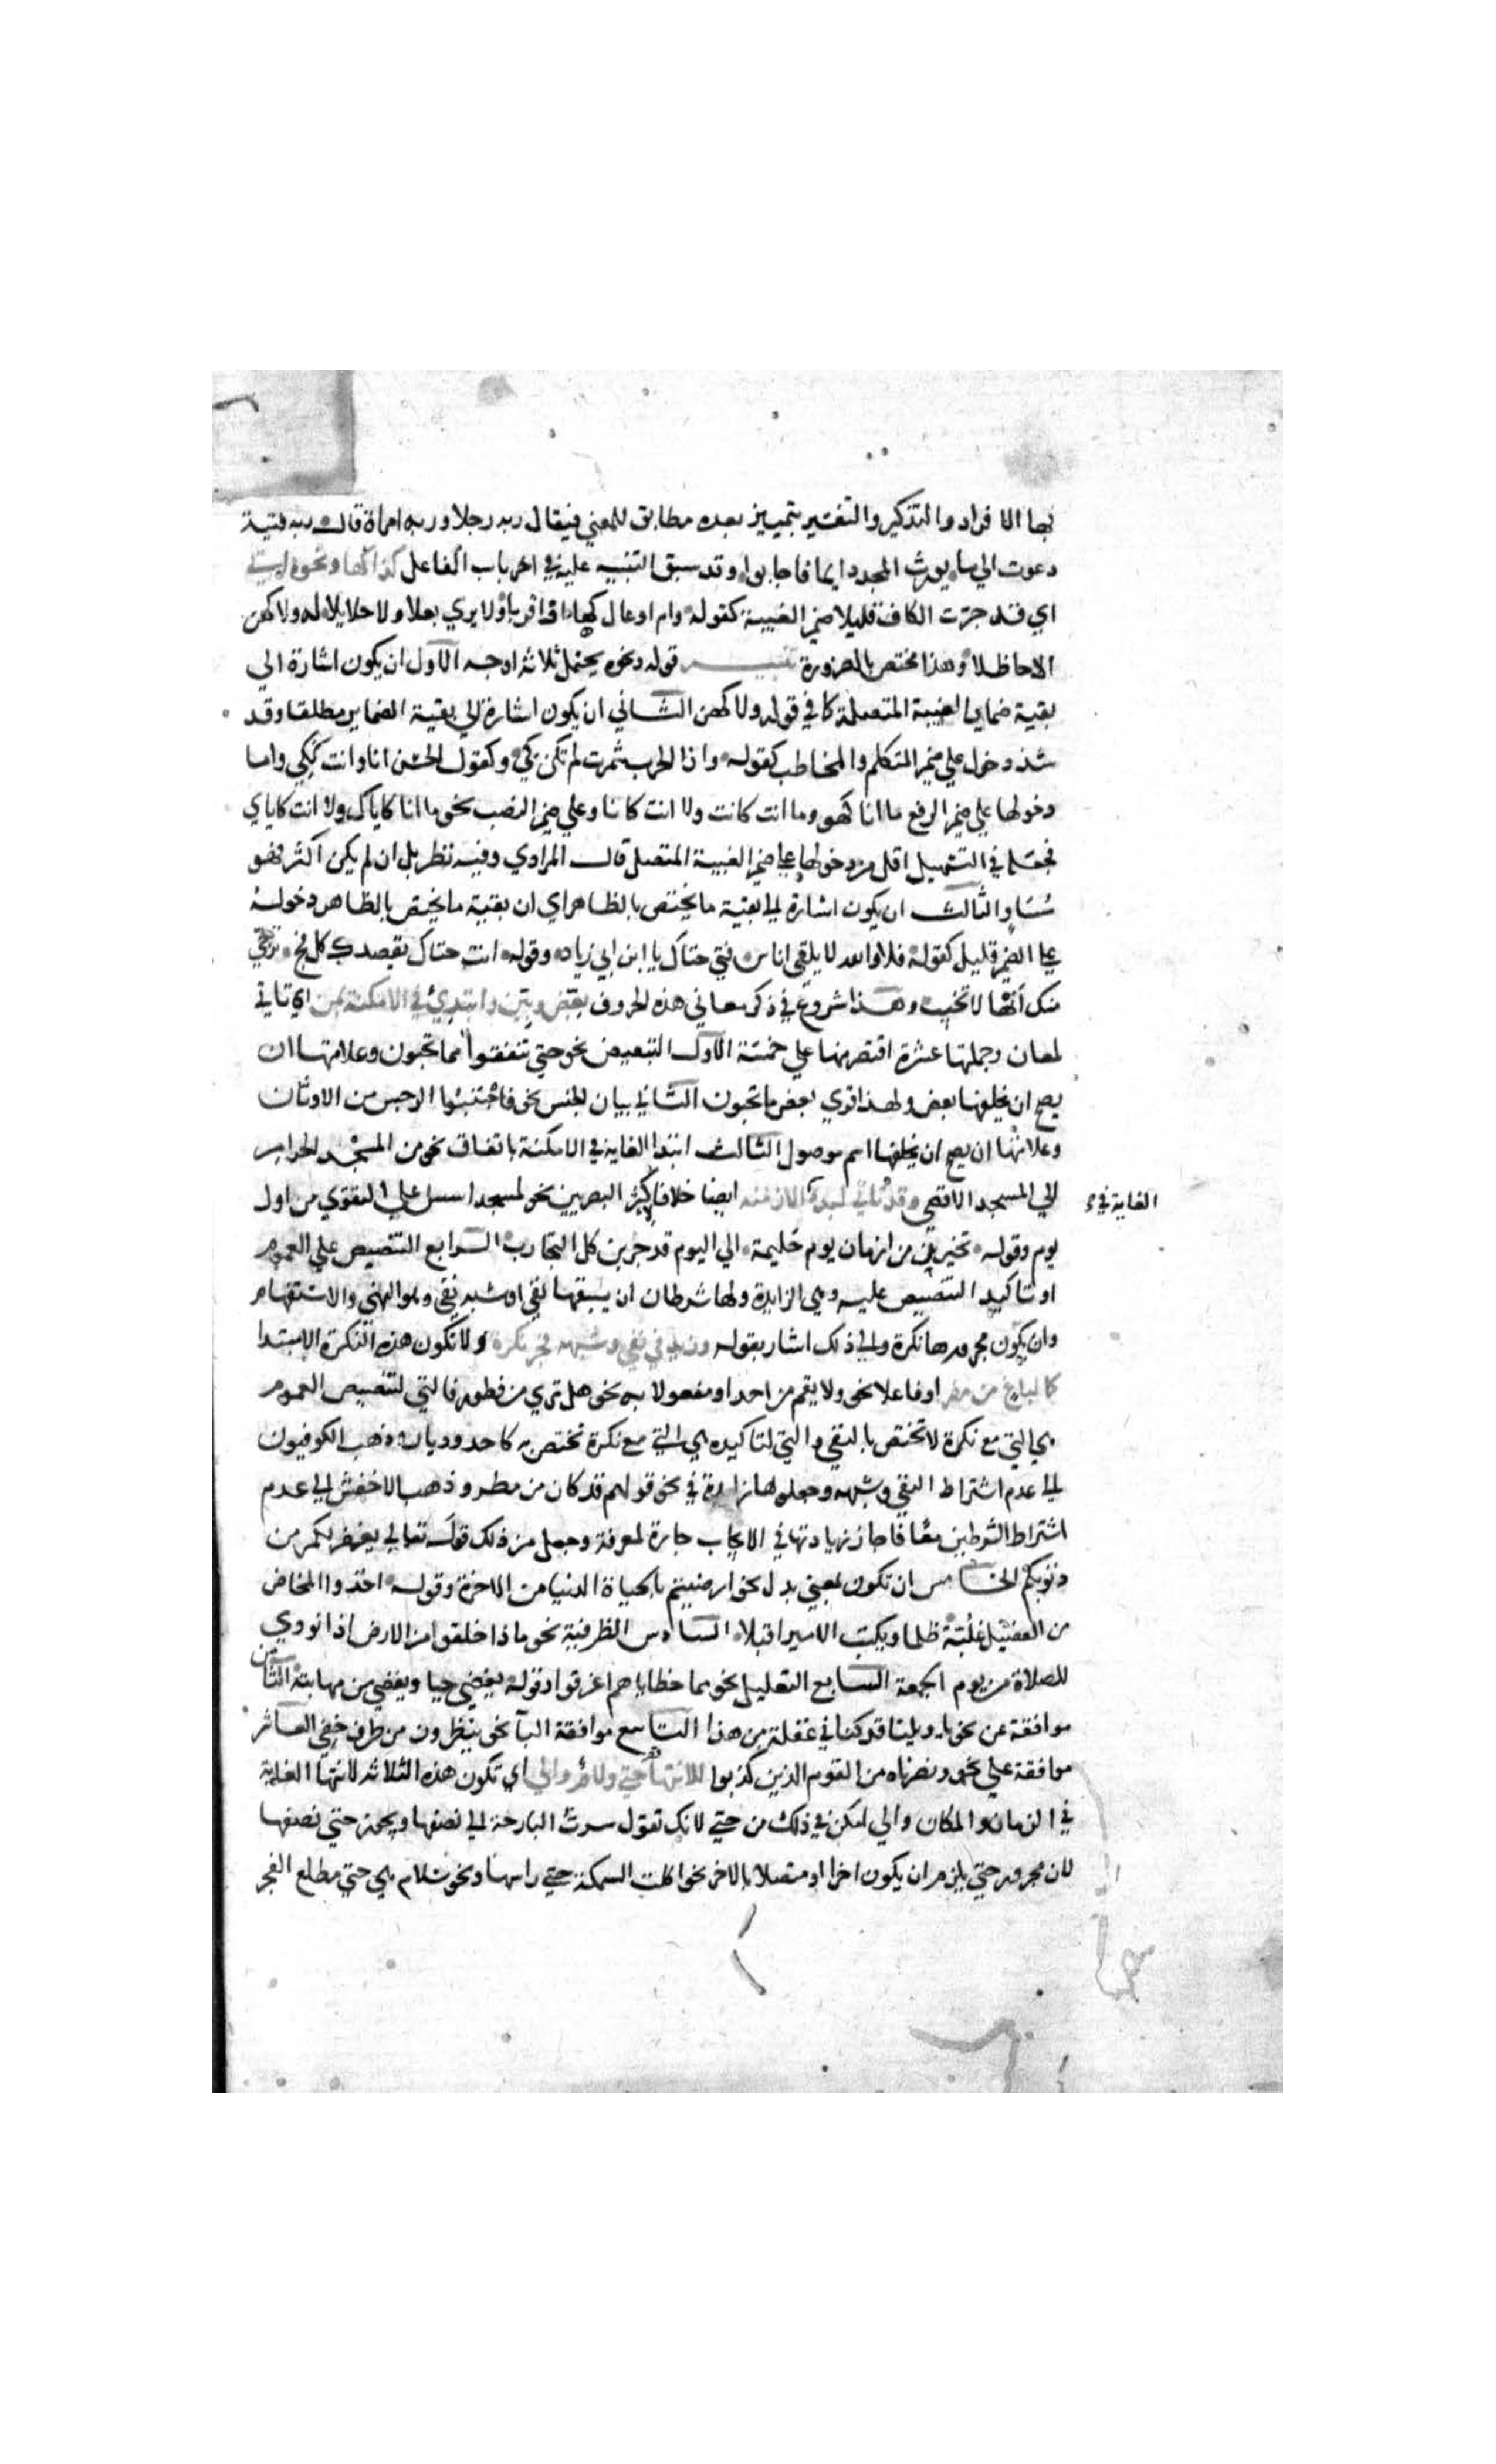 بها الافراد والتذكير والتفسير بتمييز بعده مطابق للمعني فيقال ربه رجلا وربه امراة قال ربه فتية
دعوت الي ما يورث المجد دايما فاجابوا وقد سبق التنبيه عليه في اخر باب الفاعل كذا كها ونحوه اتي
اي قد جرت الكاف قليلا ضمير الغيبة كقوله وام اوعال كها او اقربا ولا يري بعلا ولا حلايلا له ولا كهن
الا حاظلا وهذا مختص بالضرورة تنبيه قوله ونحوه يحتمل ثلاثة اوجه الاول ان يكون اشارة الي
بقية ضماير الغيبة المتصلة كما في قوله ولا كهن الثاني ان يكون اشارة الي بقية الضماير مطلقا وقد
شذ دخول علي ضمير المتكلم والمخاطب كقوله واذا الحرب شمرت لم تكن كي وكقول الحسن انا وانت ككي واما
دخولها علي ضمير الرفع ما انا كهو وما انت كانت ولا انت كانا وعلي ضمير النصب نحو ما انا كاياك ولا انت كاياي
فجعله في التسهيل اقل من دخولها علي ضمير الغيبة المتصل قال المرادي وفيه نظر بل ان لم يكن اكثر فهو
مُسَاوٍ والثالث ان يكون اشارة الي بقية ما يختص بالظاهر اي ان بقية ما يختص بالظاهر دخوله
علي الضمير قليل كقوله فلا والله لا يلقي اناس فتي حتاك يا ابن ابي زياد وقوله اتت حتاك تقصد كل فج ترجي
منك انها لا تخيب وهذا شروع في ذكر معاني هذه الحروف بعض وبين وابتدئ في الامكنة بمن اي تاتي من
لمعان وجملتها عشرة اقتصر منها علي خمسة الاول التبعيض نحو حتي تنفقوا مما تحبون وعلامتها ان
يصح ان يخلفها بعض ولهذا قري بعض ما تحبون الثاني بيان الجنس نحو فاجتنبوا الرجس من الاوثان
وعلامتها ان يصح ان يخلفها اسم موصول الثالث ابتدا الغاية في الامكنة باتفاق نحو من المسجد الحرام
الي المسجد الاقصي وقد تاتي لبدء الازمنه ايضا خلافا لاكثر البصريين نحو لمسجد اسس علي التقوي من اول
الغاية في
يوم وقوله تخيرن من ازمان يوم حَليمة الي اليوم قد جربن كل التجارب الرابع التنصيص علي العموم
او تاكيد التنصيص عليه وهي الزايدة ولها شرطان ان يسبقها نفي او شبه نفي وهو النهي والاستفهام
وان يكون مجرورها نكرة والي ذلك اشار بقوله وزيد في نفي وشبهه فجر نكرة ولا تكون هذه النكرة الا مبتدا
كما لباغ من مفر او فاعلا نحو ولا يقم من احد او مفعولا به نحو هل تري من فطور فالتي لتنصيص العموم
هي التي مع نكرة لا تختص بالنفي والتي لتاكيده هي التي مع نكرة تختص به كاحد وديار وذهب الكوفيون
الي عدم اشتراط النفي وشبهه وجعلوها زايدة في نحو قولهم قد كان من مطر وذهب الاخفش الي عدم
اشتراط الشرطين معًا فاجاز زيادتها في الايجاب جارة لمعرفة وجعل من ذلك قوله تعالي يغفر لكم من
ذنوبكم الخامس ان تكون بمعني بدل نحو ارضيتم بالحياة الدنيا من الاخرة وقوله اخذوا المخاض
من الفصيل غُلبّة ظلما ويكتب الامير افيلا السادس الظرفية نحو ماذا خلقوا من الارض اذا نودي
للصلاة من يوم الجمعة السابع التعليل نحو مما خطاياهم اغرقوا وقوله يغضي حيا ويغضي من مهابته الثامن
موافقة عن نحو يا ويلينا قد كنا في غفلة من هذا التاسع موافقة البا نحو ينظرون من طرف خفي العاشر
موافقة علي نحو ونصرناه من القوم الذين كذبوا للانتها حتي ولام والي اي تكون هذه الثلاثة لانتها الغاية
في الزمان والمكان والي امكن في ذلك من حتي لانك تقول سرت البارحة الي نصفها ويجوز حتي نصفها
لان مجرور حتي يلزم ان يكون اخرا او متصلا بالاخر نحو اكلت السمكة حتي راسها ونحو سلام هي حتي مطلع الفجر